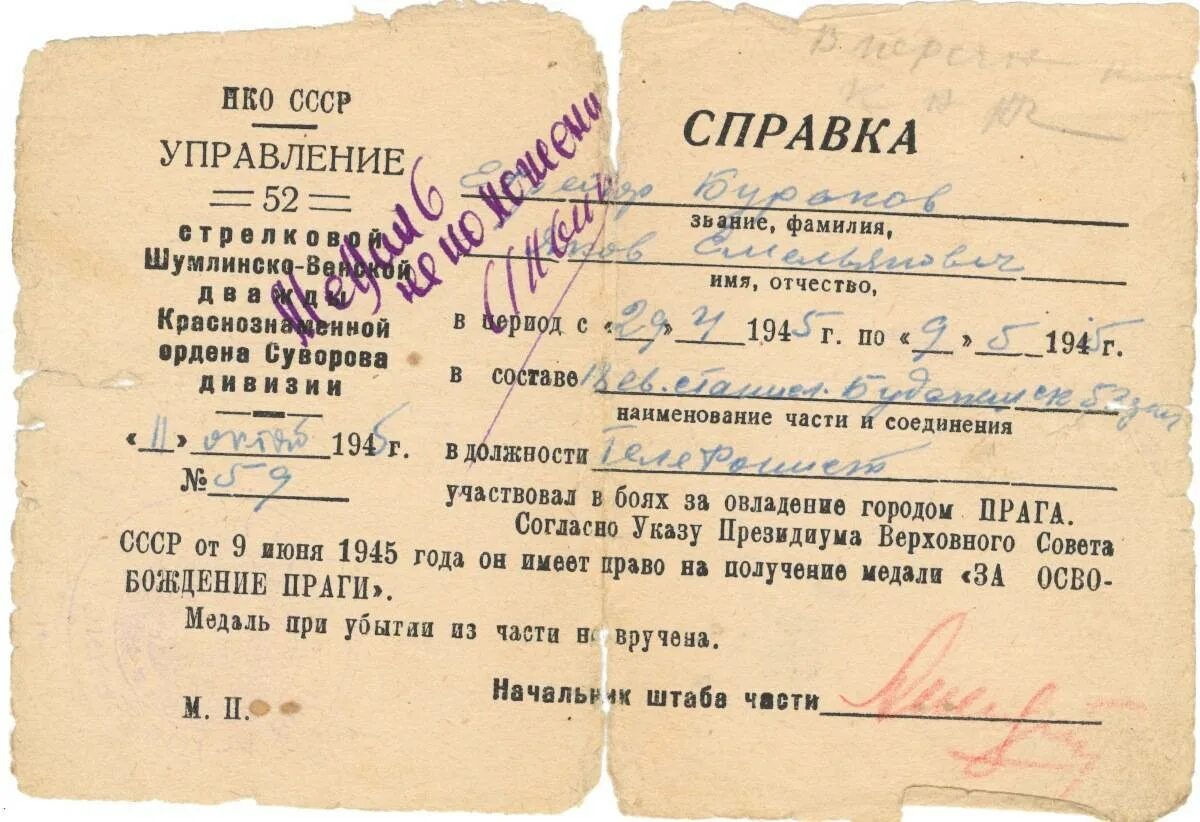 НКО СССР
УПРАВЛЕНИЕ
52
стрелковой
Шумлинско-Венской
дважды
Краснознаменной
ордена Суворова
дивизии
«11» октяб 1945 г.
№ 59
СПРАВКА
Бураков
звание, фамилия,
Емельянович
имя, отчество,
в период с «29» 4 1945 г. по «9» 5 1945 г.
в составе
наименование части и соединения
в должности Телефонист
участвовал в боях за овладение городом ПРАГА.
Согласно Указу Президиума Верховного Совета
СССР от 9 июня 1945 года он имеет право на получение медали «ЗА ОСВО-
БОЖДЕНИЕ ПРАГИ».
Медаль при убытии из части не вручена.
Начальник штаба части
М. П.